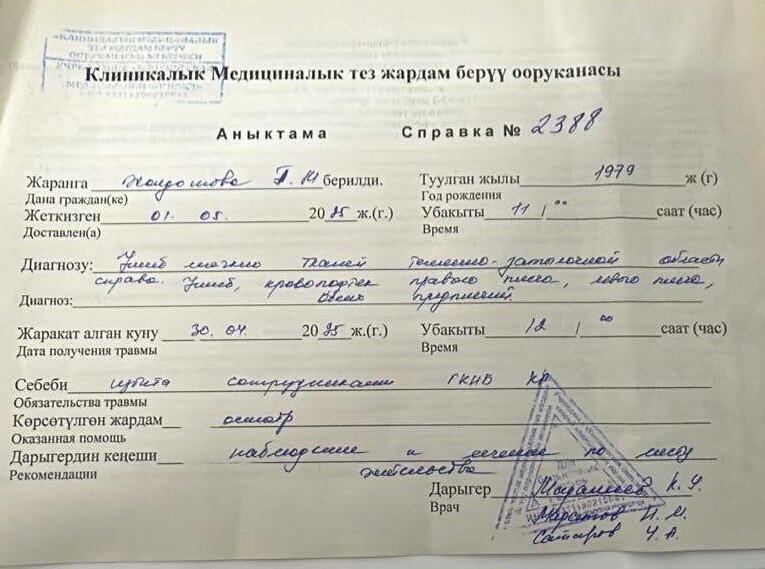 «КЛИНИКАЛЫК МЕДИЦИНАЛЫК
ТЕЗ ЖАРДАМ БЕРҮҮ
Клиникалык Медициналык тез жардам берүү ооруканасы
Аныктама Справка № 2388
Жаранга Жолдошова Г. М берилди. Туулган жылы 1979 ж (г)
Дана граждан(ке) Год рождения
Жеткизген 01. 05. 2025 ж.(г.) Убакыты 11 / 00 саат (час)
Доставлен(а) Время
Диагнозу: Ушиб мягких тканей теменно-затылочной области
справа. Ушиб, кровоподтек правого плеча, левого плеча,
Диагноз: обеих предплечий.
Жаракат алган куну 30. 04. 2025 ж.(г.) Убакыты 12 / 00 саат (час)
Дата получения травмы Время
Себеби избита сотрудниками ГКНБ КР
Обязательства травмы
Көрсөтүлгөн жардам осмотр
Оказанная помощь
Дарыгердин кеңеши наблюдение и лечение по месту
Рекомендации жительства
Дарыгер К. У.
Врач
Сатаров Ч. А.